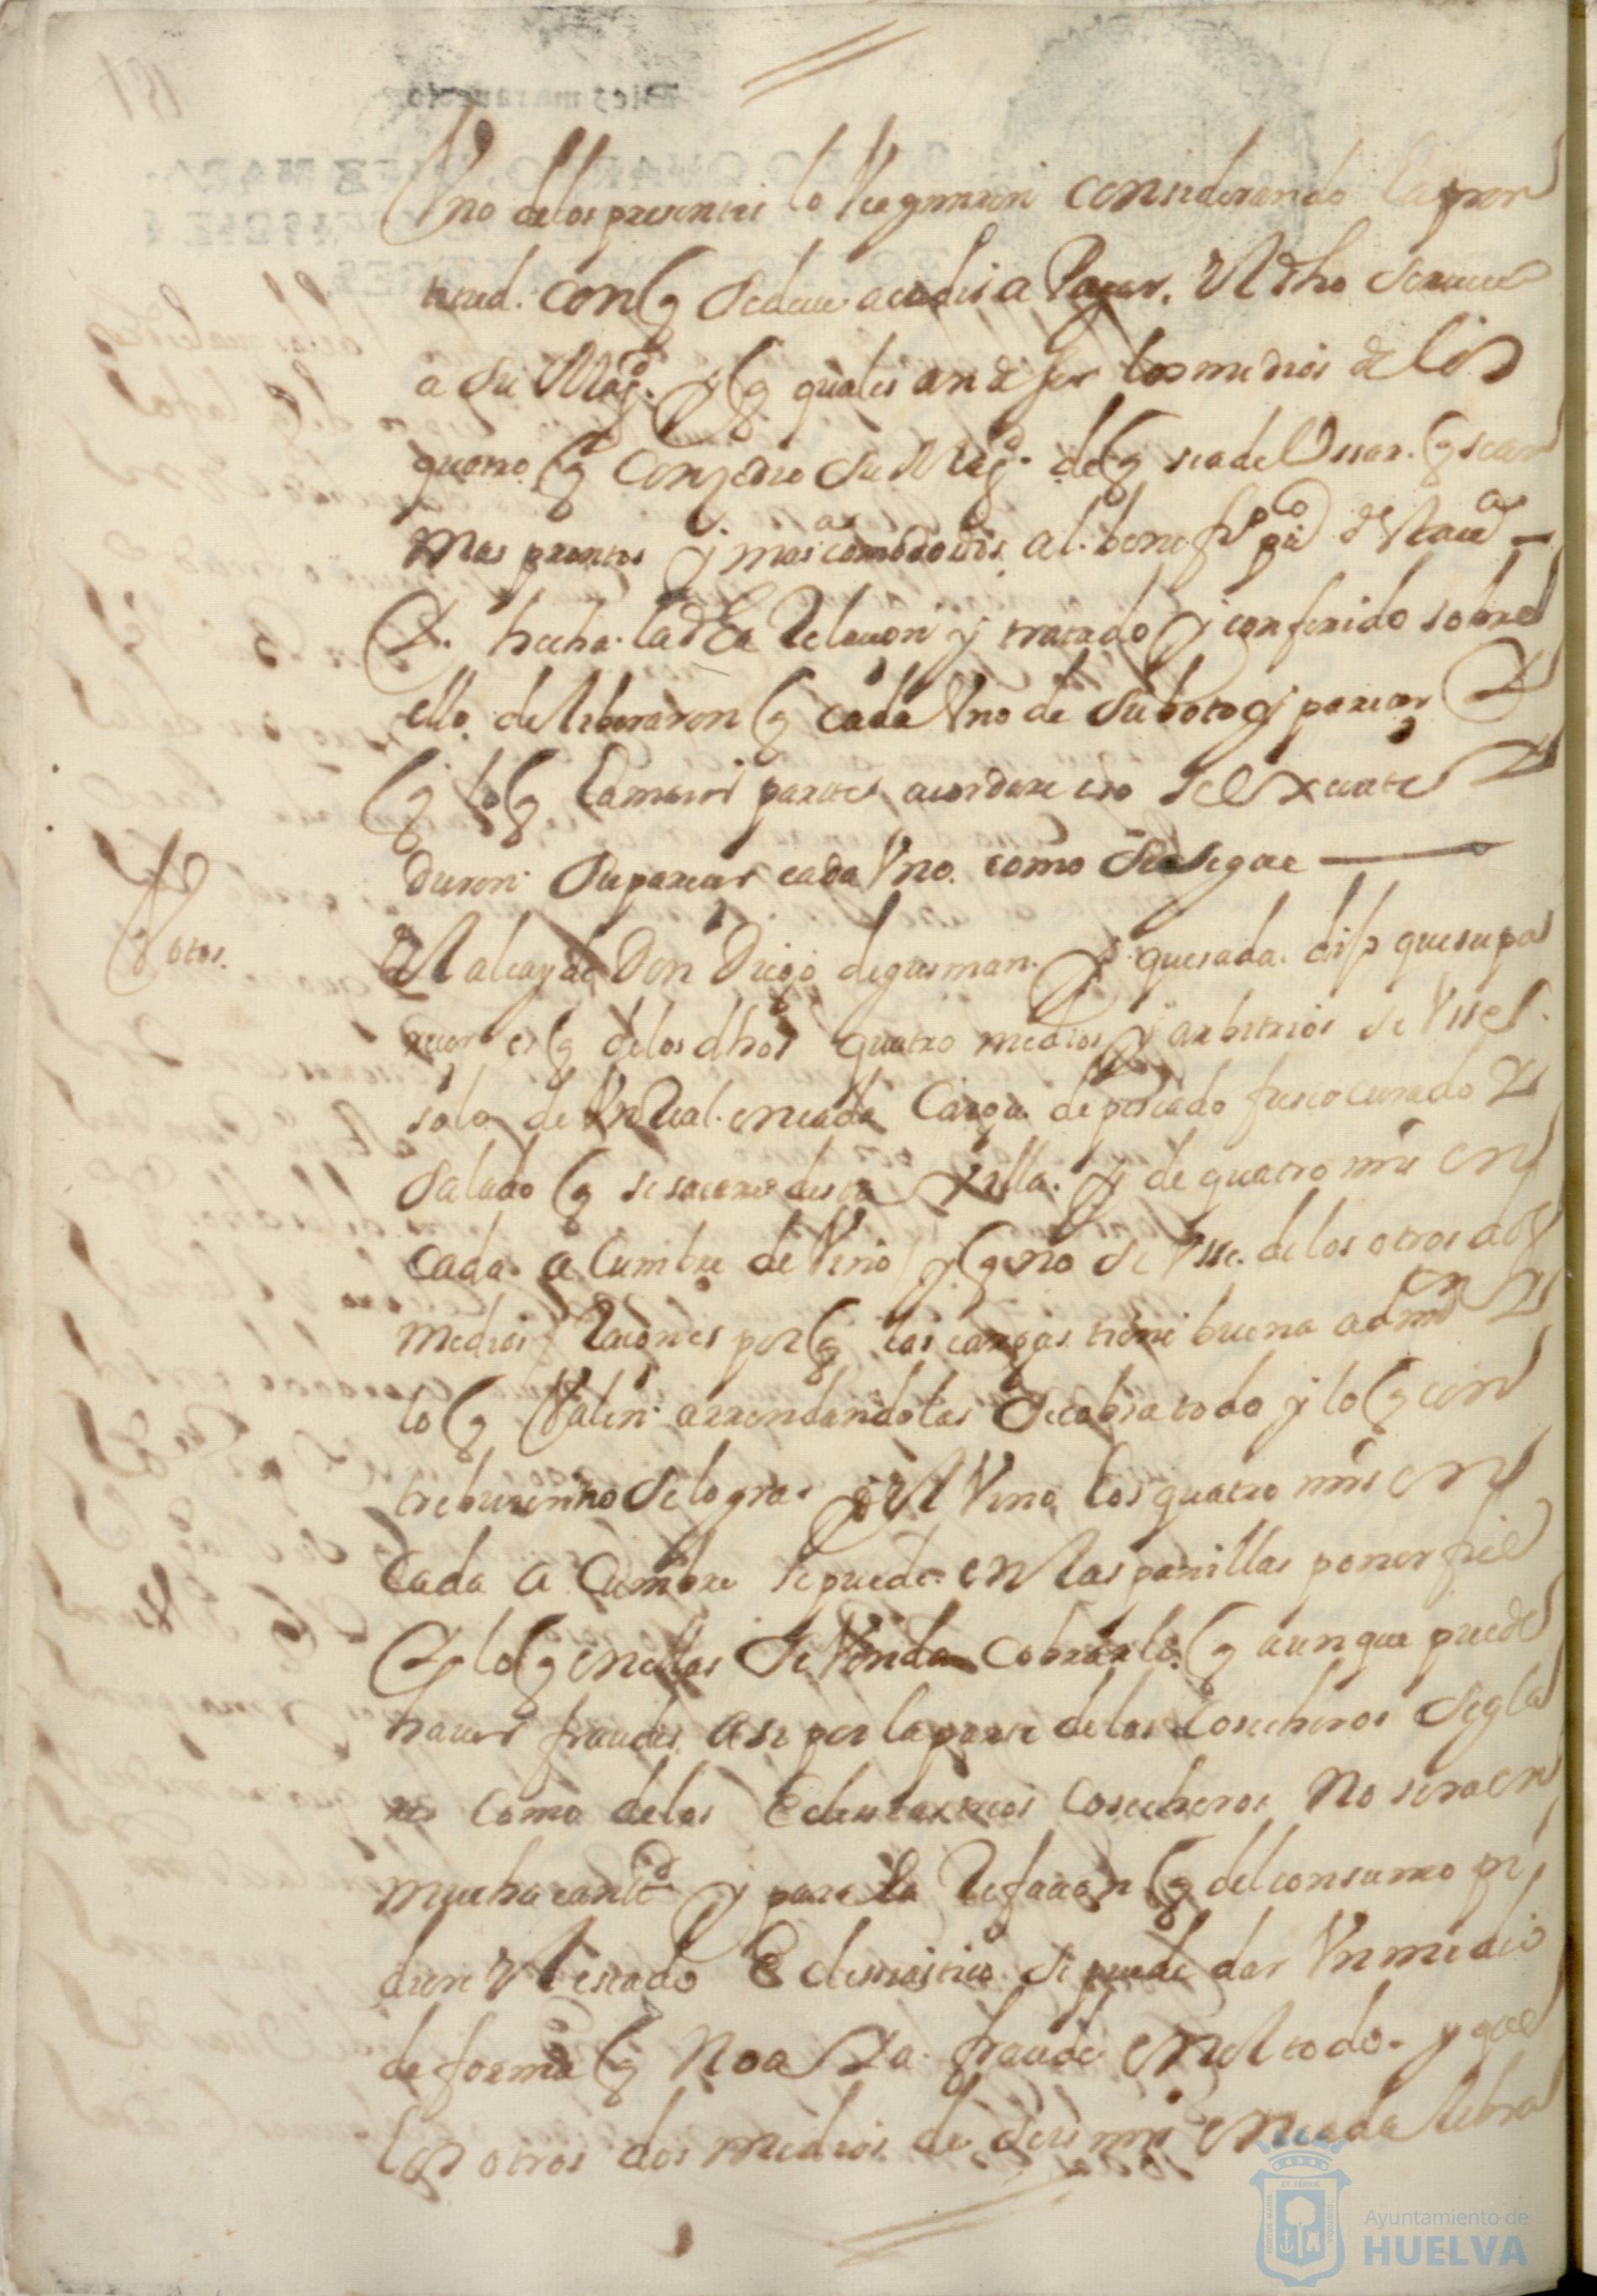 Uno de los presentes lo considerando la pron
titud. con q se deue acudir a Pagar. el dho seruicio
a Su Magd. y q quales an de ser los medios de los
quatro. q Conzedio Su Magd. de q sea de Usar. q sean
mas prontos y mas comodos al benefº pu
Y. hecha. la dha Relacion y tratado y conferido sobre
ello. deliberaron q cada Uno de su boto y parecer Y
q lo q la maior parte acordare eso se execute Y
dieron Su parecer cada Uno. como Se sigue
Votos.
El alcayde Don Diego de gusman. y quesada. dijo que su pa
recer es q de los dhos quatro medios y arbitrios se Use
solo de Un Real. en cada Carga. de pescado fresco curado Y
Salado q se sacare desta Villa. y de quatro mrs en
cada. a Cumbre de Vino y q no se Use. de los otros dos
medios Raciones por q las cargas tiene buena admon Y
lo q Valen. arrendandolas Se cobra todo y lo q con
tribuien no Se logra. y el Vino los quatro mrs en
Cada a Cumbre se puede en las panillas poner fiel
Y lo q en ellas Se Venda Cobrarlo. q aunque puede
hauer fraudes asi por la parte de los Cosecheros Segla
res como de los Eclesiasticos Cosecheros No sera en
mucha cantd y para la Refacion q del consumo pi
diere el estado Eclesiastico se puede dar Un medio
de forma q No aya. fraude en el todo. y que
los otros dos medios. de dies mrs en cada libra
Ayuntamiento de
HUELVA